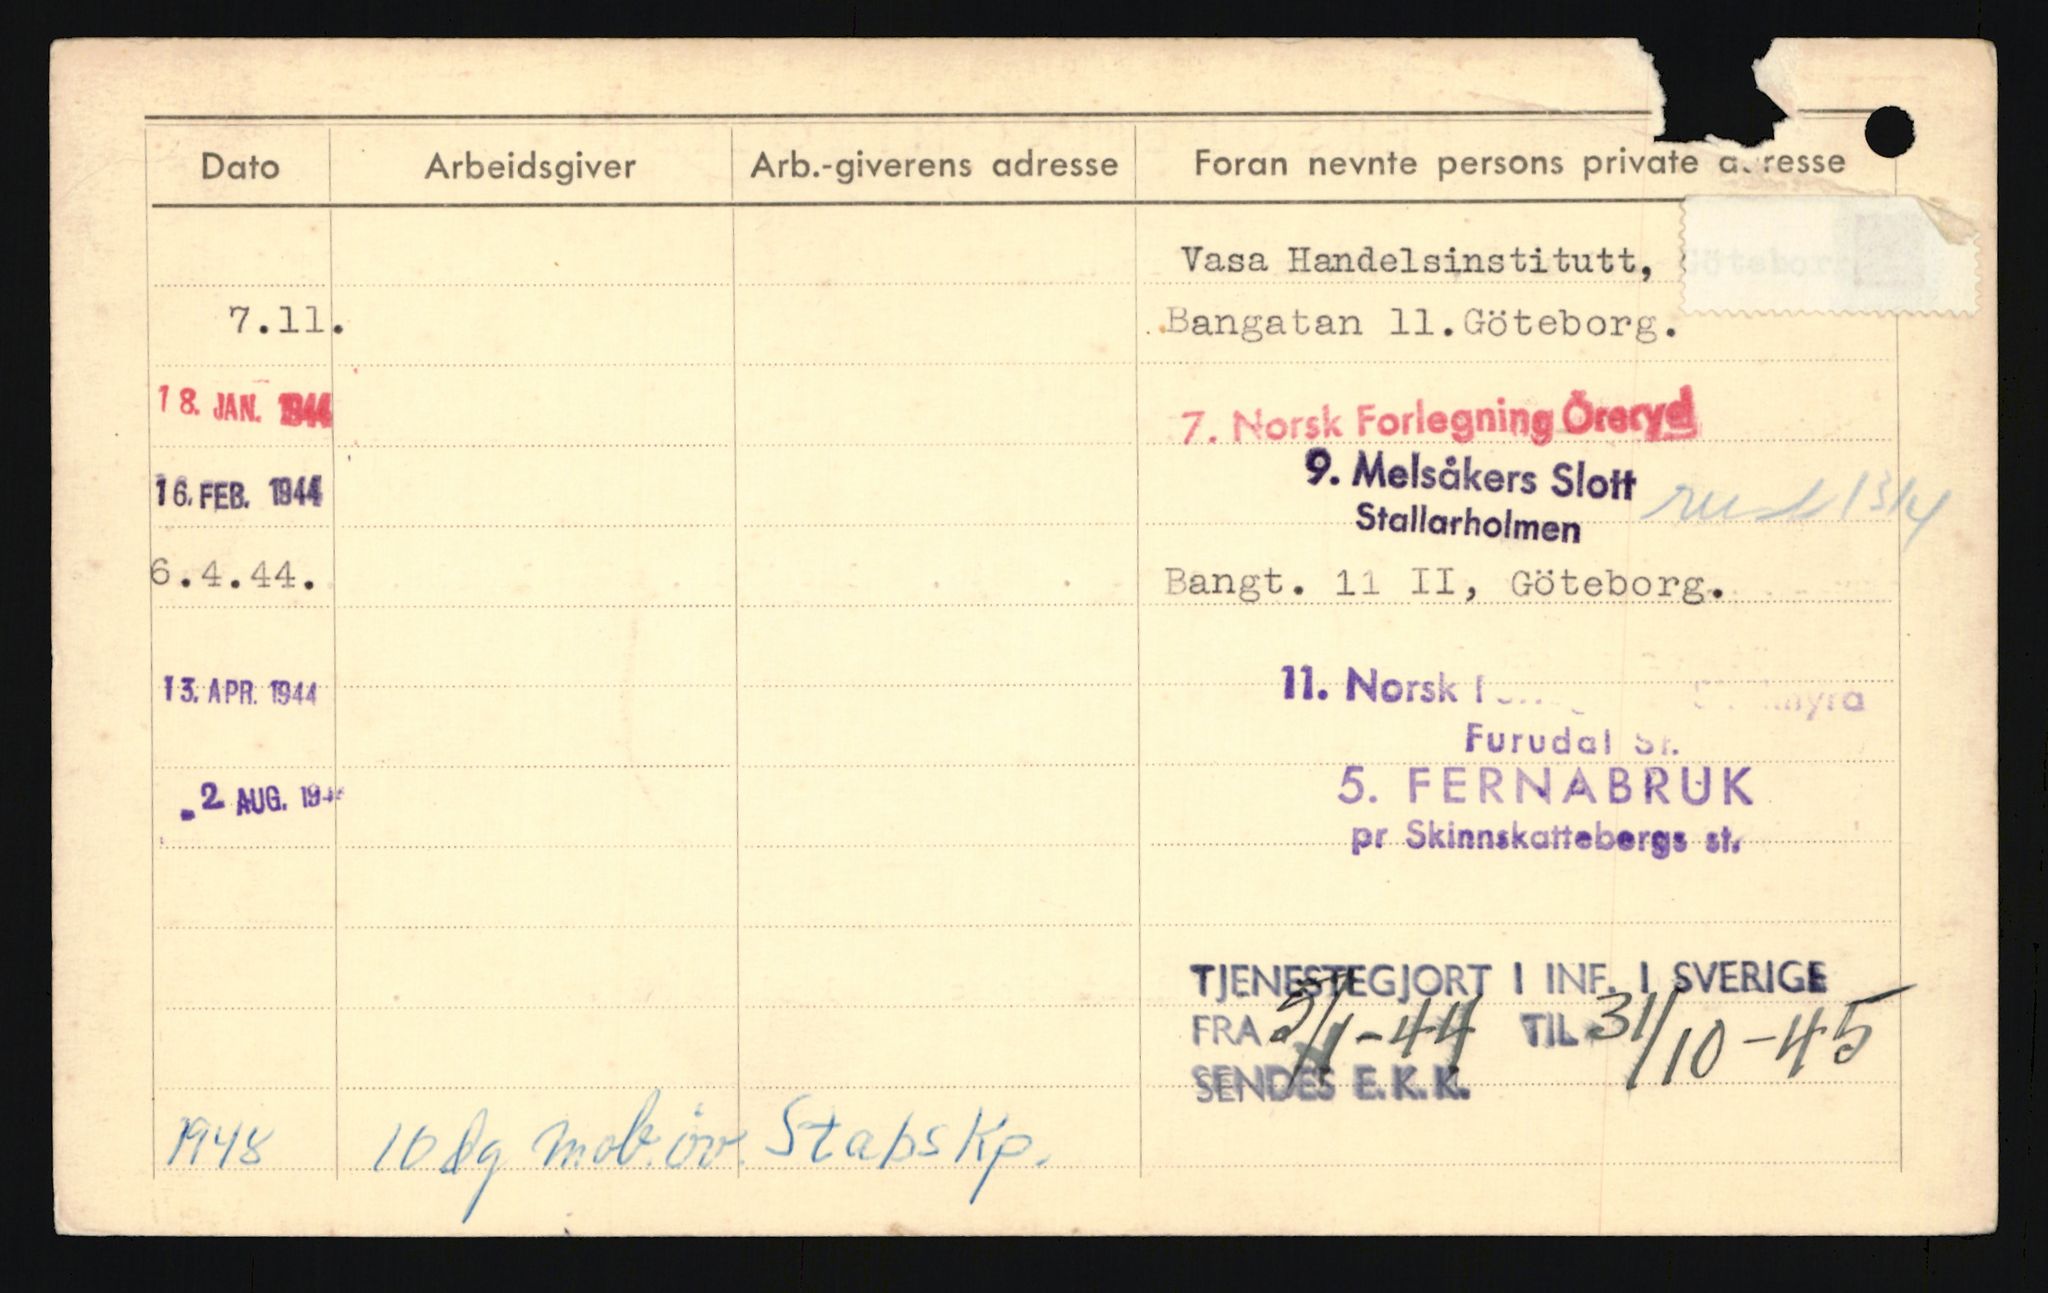 Dato Arbeidsgiver Arb.-giverens adresse Foran nevnte persons private adresse
Vasa Handelsinstitutt, Göteborg
7.11. Bangatan 11. Göteborg.
18. JAN. 1944 7. Norsk Forlegning Öreryd
16. FEB. 1944 9. Melsåkers Slott
Stallarholmen 13/4
6.4.44. Bangt. 11 II, Göteborg.
13. APR. 1944 11. Norsk
Furudal St.
-2 AUG. 194 5. FERNABRUK
pr Skinnskattebergs st.
TJENESTEGJORT I INF. I SVERIGE
FRA 5/1-44 TIL 31/10-45
SENDES E.K.K.
1948 10 dg mob.öv. Stabs Kp.